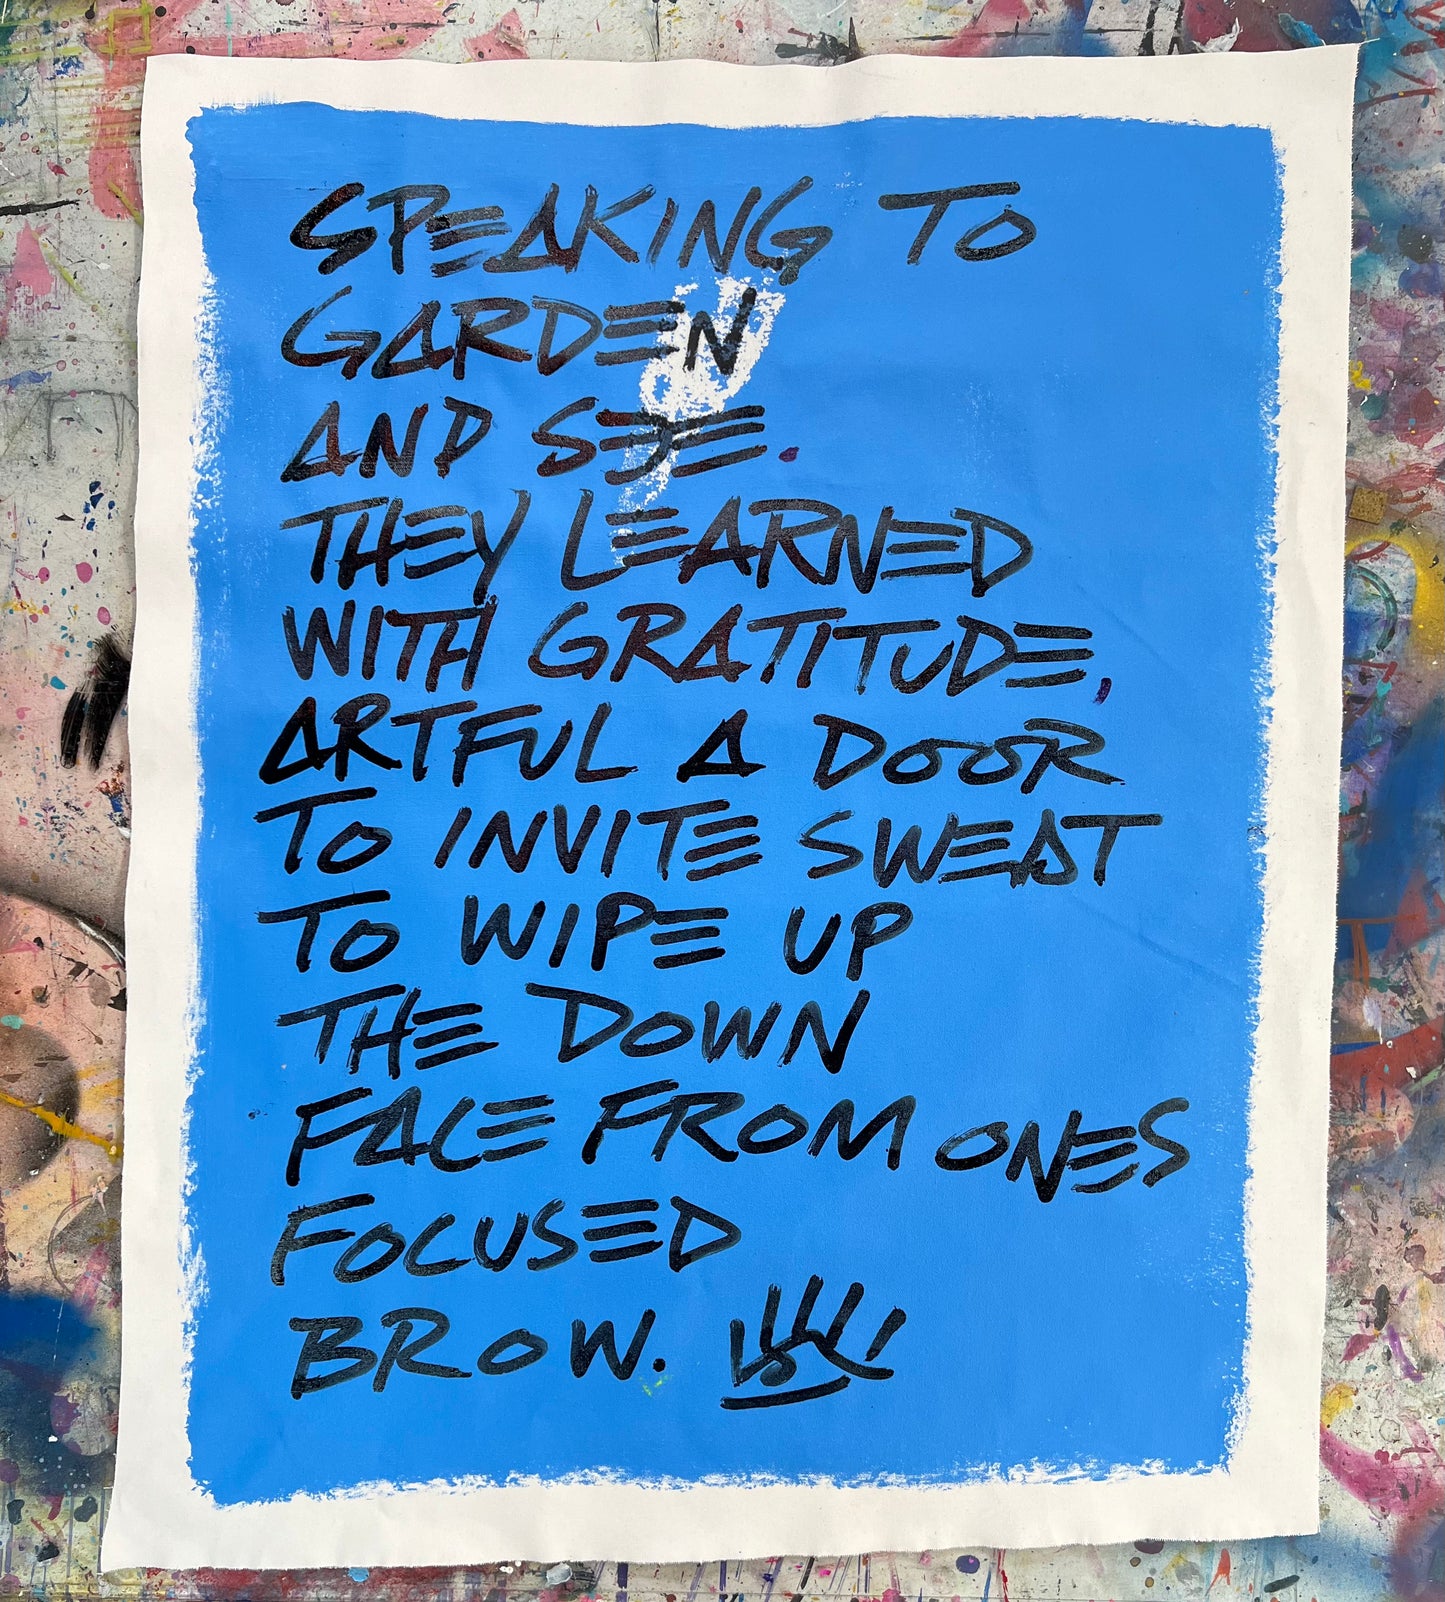 SPEAKING TO
GARDEN
AND SEE.
THEY LEARNED
WITH GRATITUDE,
ARTFUL A DOOR
TO INVITE SWEAT
TO WIPE UP
THE DOWN
FACE FROM ONES
FOCUSED
BROW.